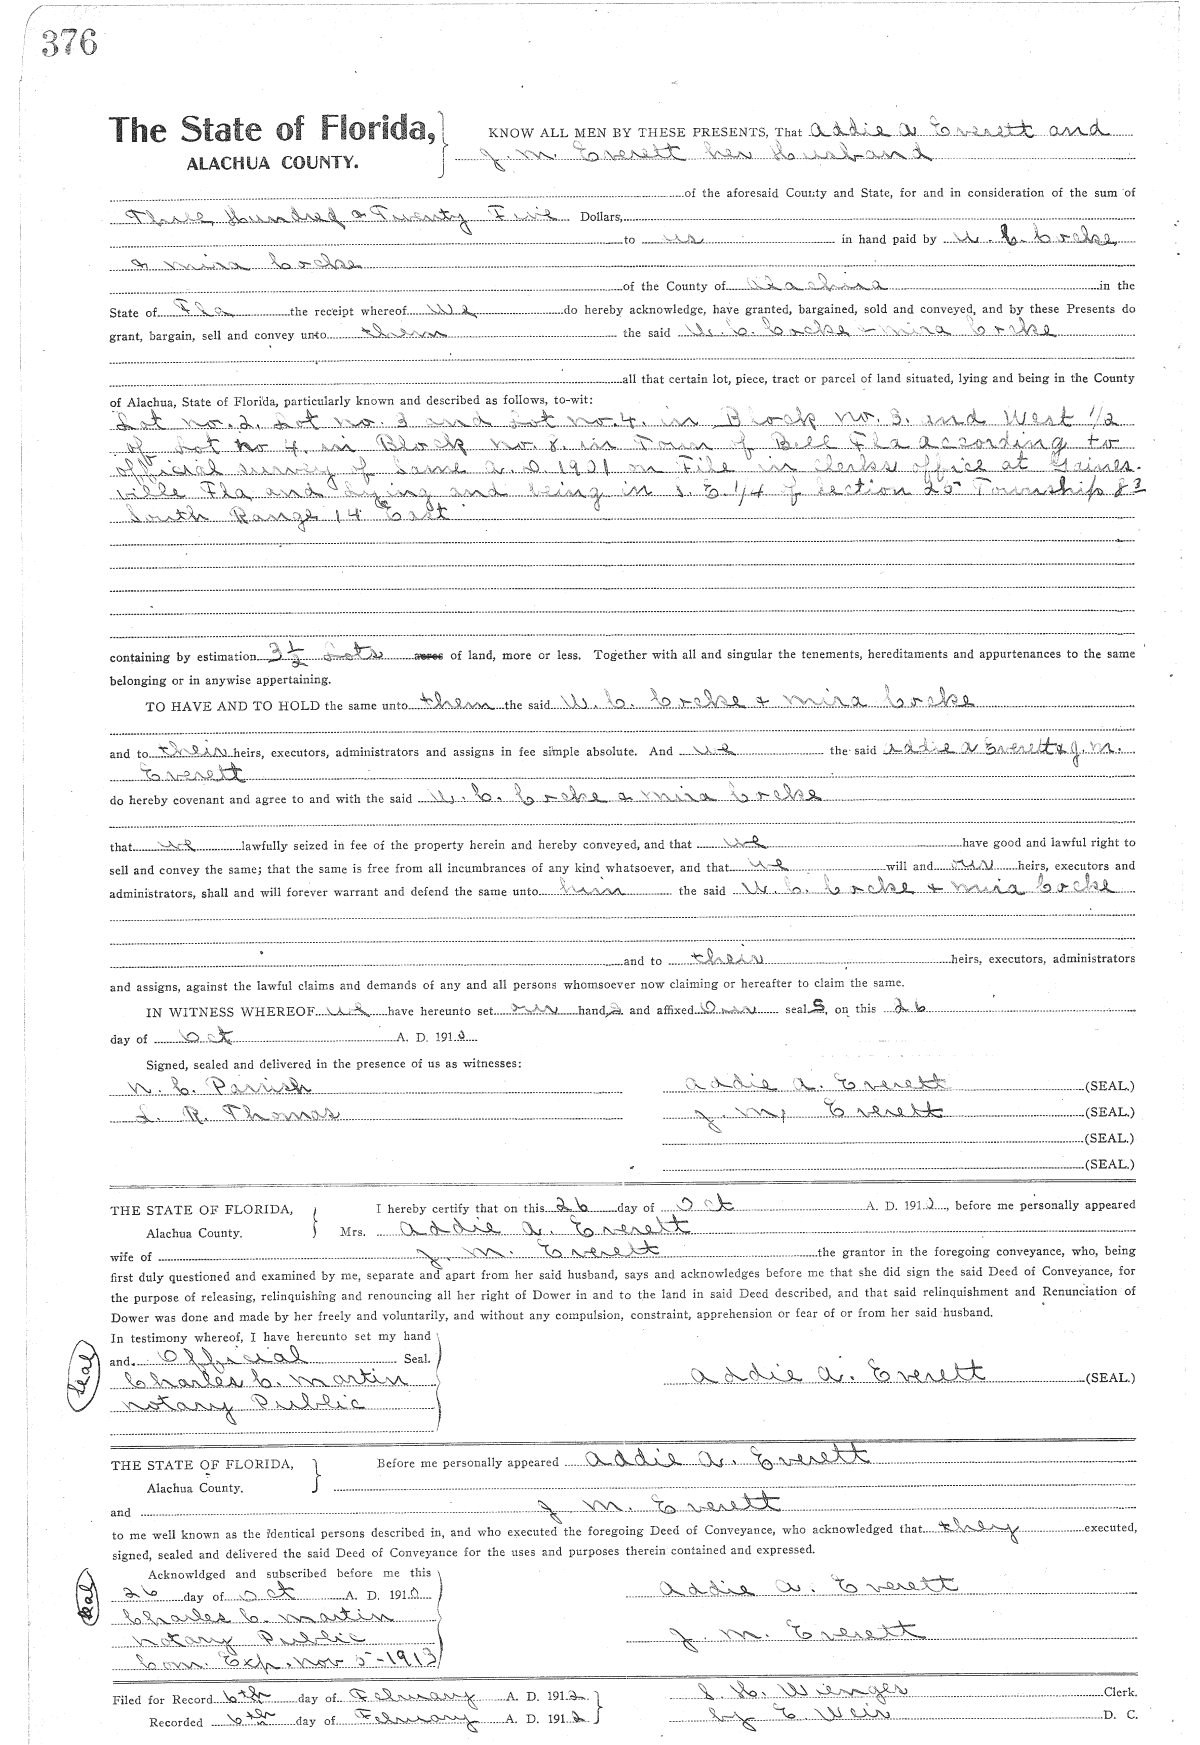 376
The State of Florida, KNOW ALL MEN BY THESE PRESENTS, That Addie A Everett and
ALACHUA COUNTY. J. M. Everett her Husband
of the aforesaid County and State, for and in consideration of the sum of
Three Hundred & Twenty Five Dollars,
to us in hand paid by W. C. Cocke
& Mira Cocke
of the County of Alachua in the
State of Fla the receipt whereof we do hereby acknowledge, have granted, bargained, sold and conveyed, and by these Presents do
grant, bargain, sell and convey unto them the said W. C. Cocke & Mira Cocke
all that certain lot, piece, tract or parcel of land situated, lying and being in the County
of Alachua, State of Florida, particularly known and described as follows, to-wit:
Lot no. 2. Lot no. 3 and Lot no. 4. in Block no. 3. and West 1/2
of Lot no 4. in Block no. 8. in Town of Bell Fla according to
official survey of same A. D. 19 1 on File in clerks office at Gaines-
ville Fla and lying and being in S. E. 1/4 of Section 25 Township 8
South Range 14 East
containing by estimation 3 1/2 Lots acres of land, more or less. Together with all and singular the tenements, hereditaments and appurtenances to the same
belonging or in anywise appertaining.
TO HAVE AND TO HOLD the same unto them the said W. C. Cocke & Mira Cocke
and to their heirs, executors, administrators and assigns in fee simple absolute. And we the said Addie A Everett & J. M.
Everett
do hereby covenant and agree to and with the said W. C. Cocke & Mira Cocke
that we lawfully seized in fee of the property herein and hereby conveyed, and that we have good and lawful right to
sell and convey the same; that the same is free from all incumbrances of any kind whatsoever, and that we will and our heirs, executors and
administrators, shall and will forever warrant and defend the same unto him the said W. C. Cocke & Mira Cocke
and to their heirs, executors, administrators
and assigns, against the lawful claims and demands of any and all persons whomsoever now claiming or hereafter to claim the same.
IN WITNESS WHEREOF we have hereunto set our hands and affixed Our seals, on this 26
day of Oct A. D. 191
Signed, sealed and delivered in the presence of us as witnesses:
N. C. Parrish Addie A. Everett (SEAL.)
L. R. Thomas J. M. Everett (SEAL.)
(SEAL.)
(SEAL.)
THE STATE OF FLORIDA, I hereby certify that on this 26 day of Oct A. D. 191 , before me personally appeared
Alachua County. Mrs. Addie A. Everett
wife of J. M. Everett the grantor in the foregoing conveyance, who, being
first duly questioned and examined by me, separate and apart from her said husband, says and acknowledges before me that she did sign the said Deed of Conveyance, for
the purpose of releasing, relinquishing and renouncing all her right of Dower in and to the land in said Deed described, and that said relinquishment and Renunciation of
Dower was done and made by her freely and voluntarily, and without any compulsion, constraint, apprehension or fear of or from her said husband.
In testimony whereof, I have hereunto set my hand
and Official Seal.
Seal
Charles C. Martin Addie A. Everett (SEAL.)
Notary Public
THE STATE OF FLORIDA, Before me personally appeared Addie A. Everett
Alachua County.
and J M. Everett
to me well known as the identical persons described in, and who executed the foregoing Deed of Conveyance, who acknowledged that they executed,
signed, sealed and delivered the said Deed of Conveyance for the uses and purposes therein contained and expressed.
Acknowldged and subscribed before me this
Seal
26 day of Oct A. D. 191 Addie A. Everett
Charles C. Martin
Notary Public J. M. Everett
Com. Exp. Nov 5-1913
Filed for Record 6th day of February A. D. 1912 S. H. Wienges Clerk.
Recorded 6th day of February A. D. 1912 by E. Weir D. C.